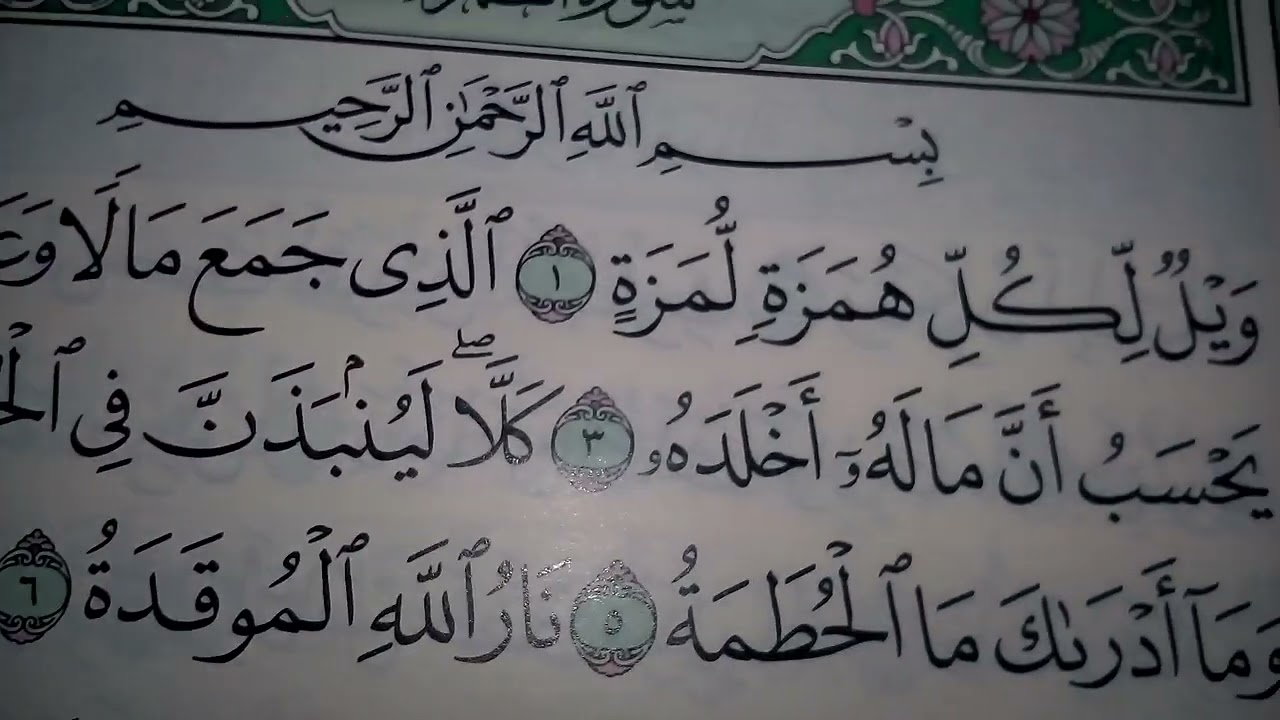 بِسْمِ ٱللَّهِ ٱلرَّحْمَٰنِ ٱلرَّحِيمِ
وَيْلٌ لِّكُلِّ هُمَزَةٍ لُّمَزَةٍ ١ ٱلَّذِى جَمَعَ مَالًا
يَحْسَبُ أَنَّ مَالَهُۥٓ أَخْلَدَهُۥ ٣ كَلَّا ۖ لَيُنۢبَذَنَّ فِى
وَمَآ أَدْرَىٰكَ مَا ٱلْحُطَمَةُ ٥ نَارُ ٱللَّهِ ٱلْمُوقَدَةُ ٦